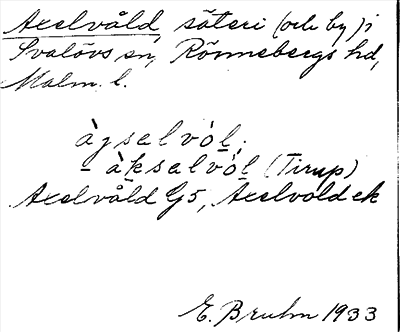 Axelvåld, säteri (och by) i
Svalövs sn, Rönnebergs hd,
Malm. l.
àgsalvòl,
- àksalvòl (Tirup)
Axelvåld G5, Axelvold ek
E. Bruhn 1933